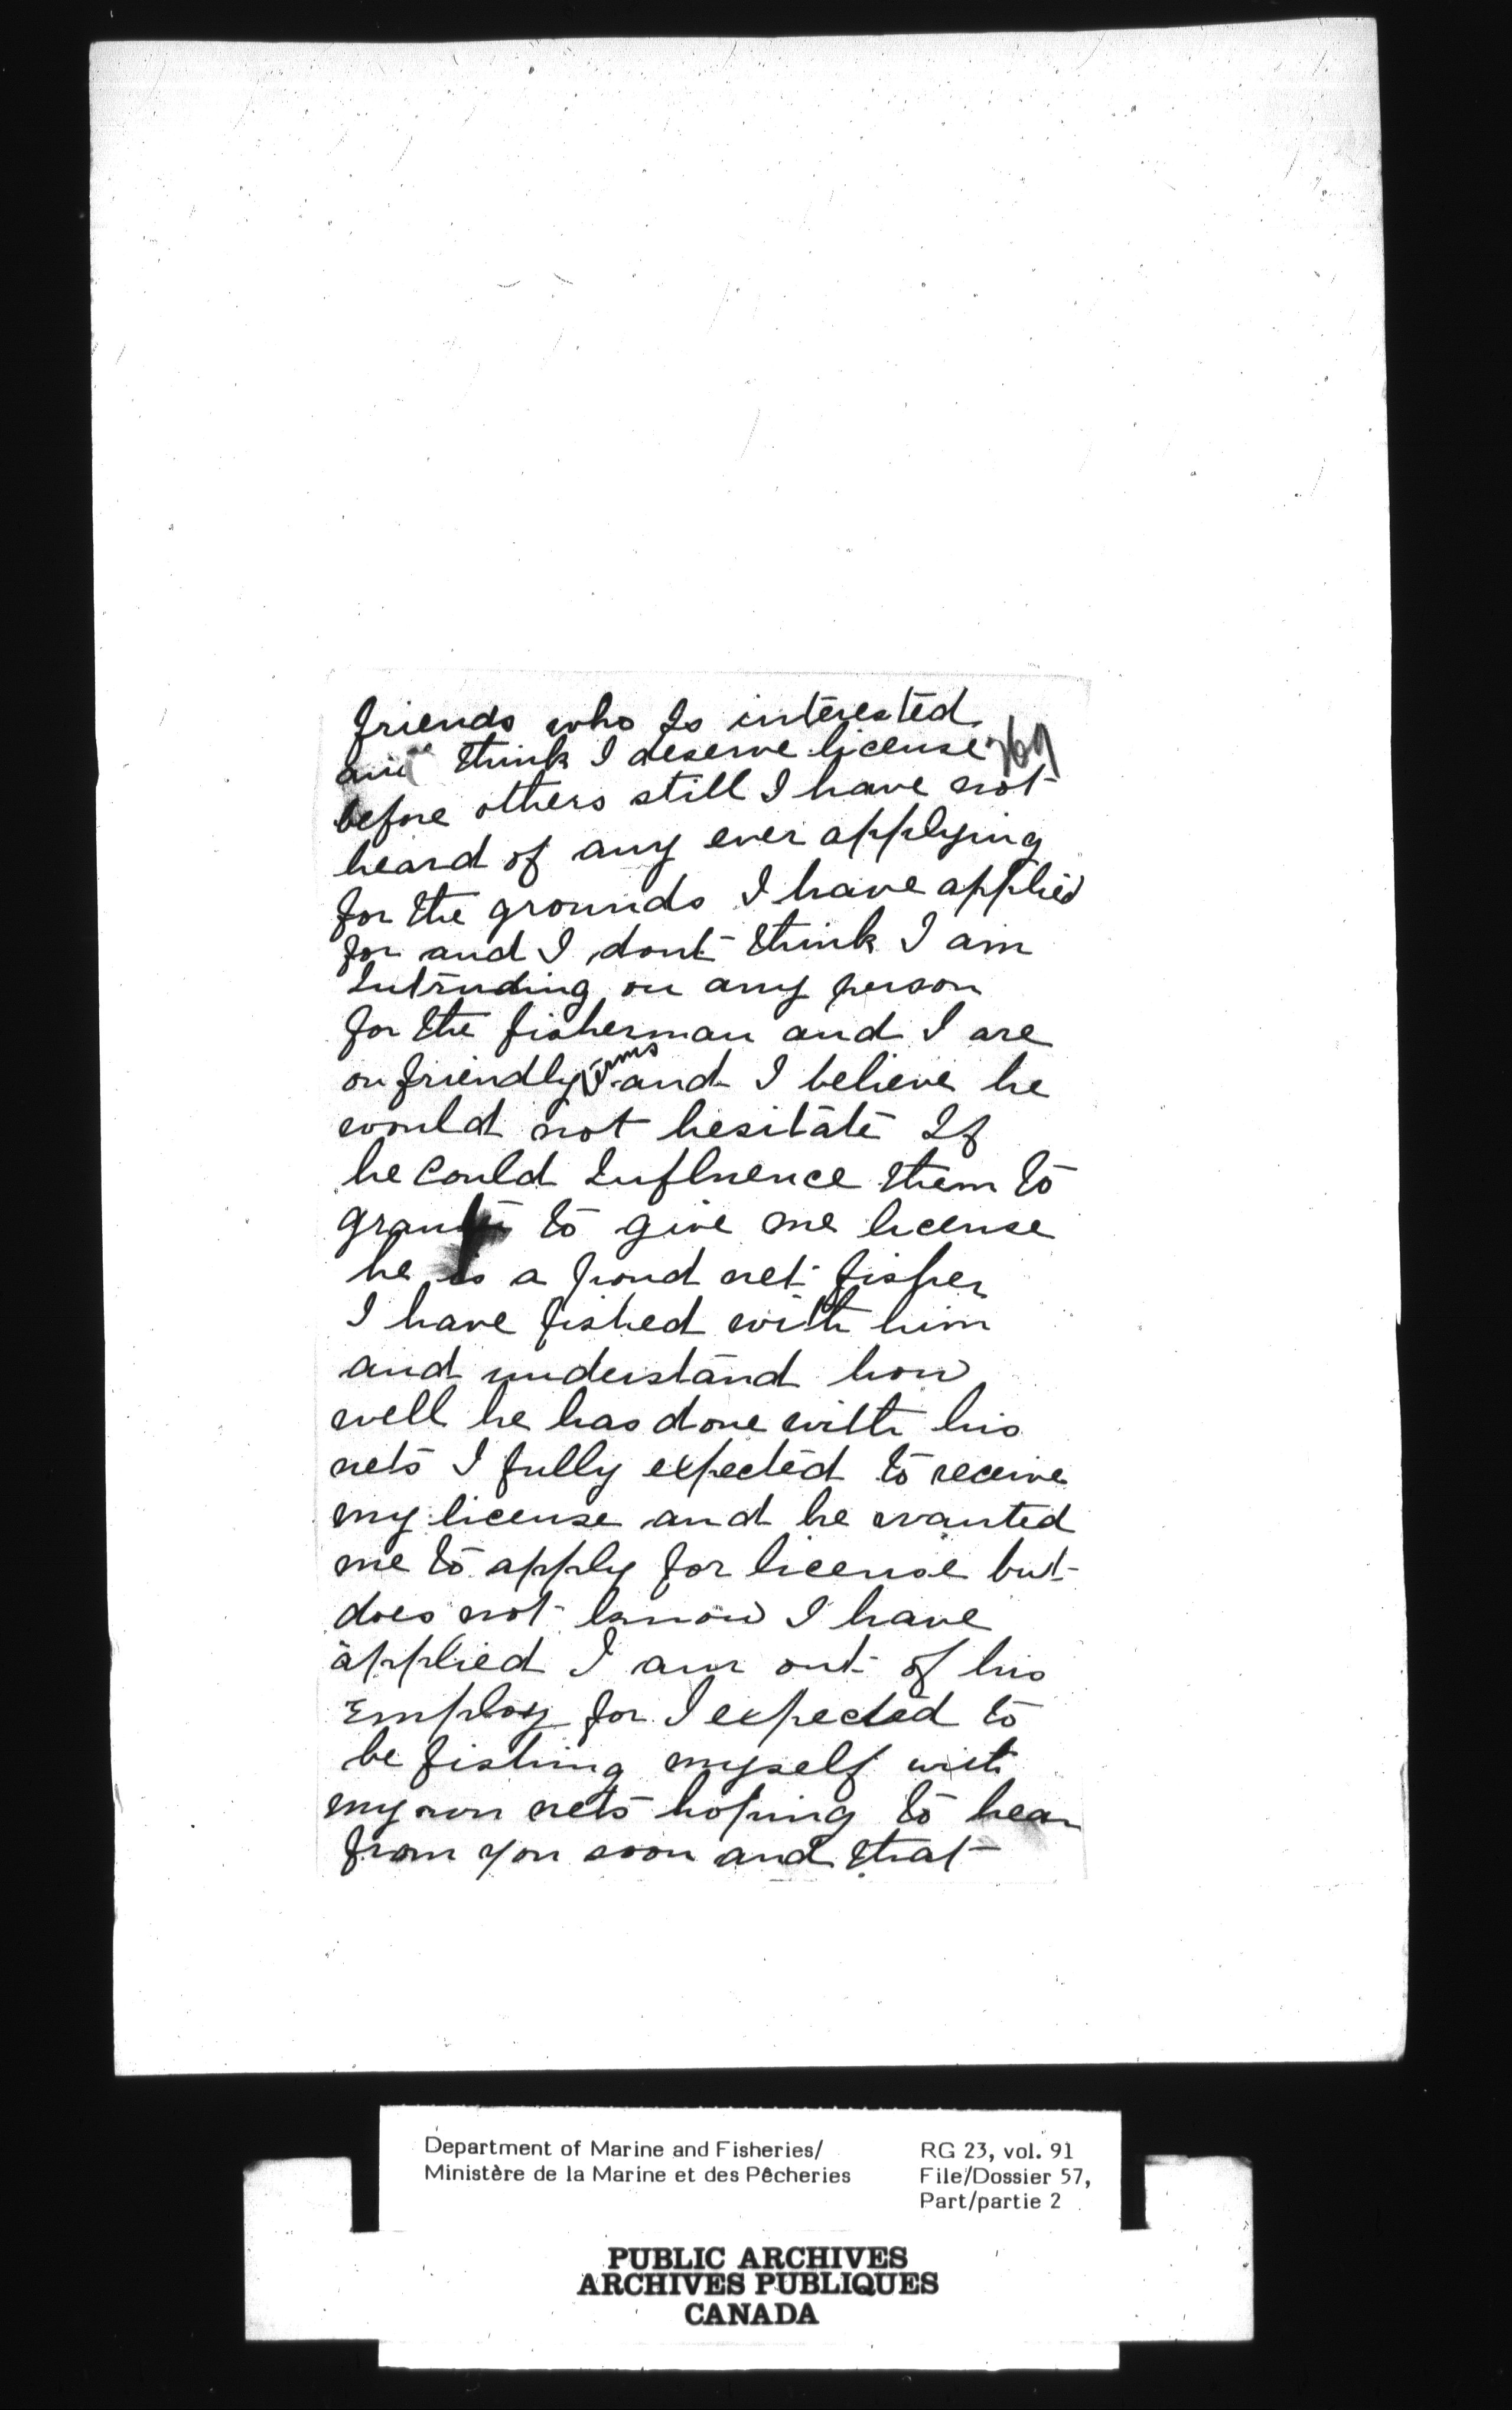 friends who Is interested
and think I deserve license 769
before others still I have not
heard of any ever applying
for the grounds I have applied
for and I dont think I am
Intruding on any person
for the fisherman and I are
on friendly terms and I believe he
would not hesitate If
he Could Influence them to
grant to give me license
he is a pond net fisher
I have fished with him
and understand how
well he has done with his
nets I fully expected to receive
my license and he wanted
me to apply for license but
does not know I have
applied I am out of his
Employ for I expected to
be fishing myself with
my own nets hoping to hear
from you soon and that
Department of Marine and Fisheries/
Ministère de la Marine et des Pêcheries
RG 23, vol. 91
File/Dossier 57,
Part/partie 2
PUBLIC ARCHIVES
ARCHIVES PUBLIQUES
CANADA